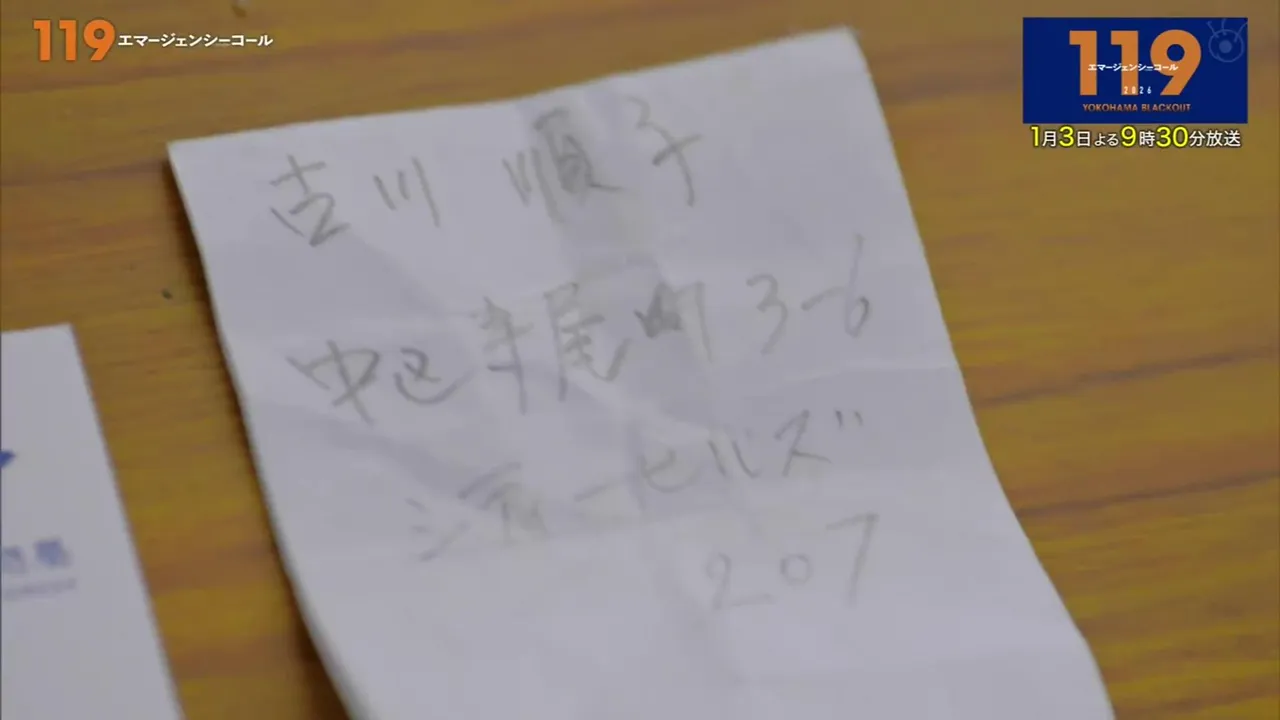 119エマージェンシーコール
119
エマージェンシーコール
2026
YOKOHAMA BLACKOUT
1月3日よる9時30分放送
吉川 順子
中区寺尾町3-6
シティーヒルズ
207